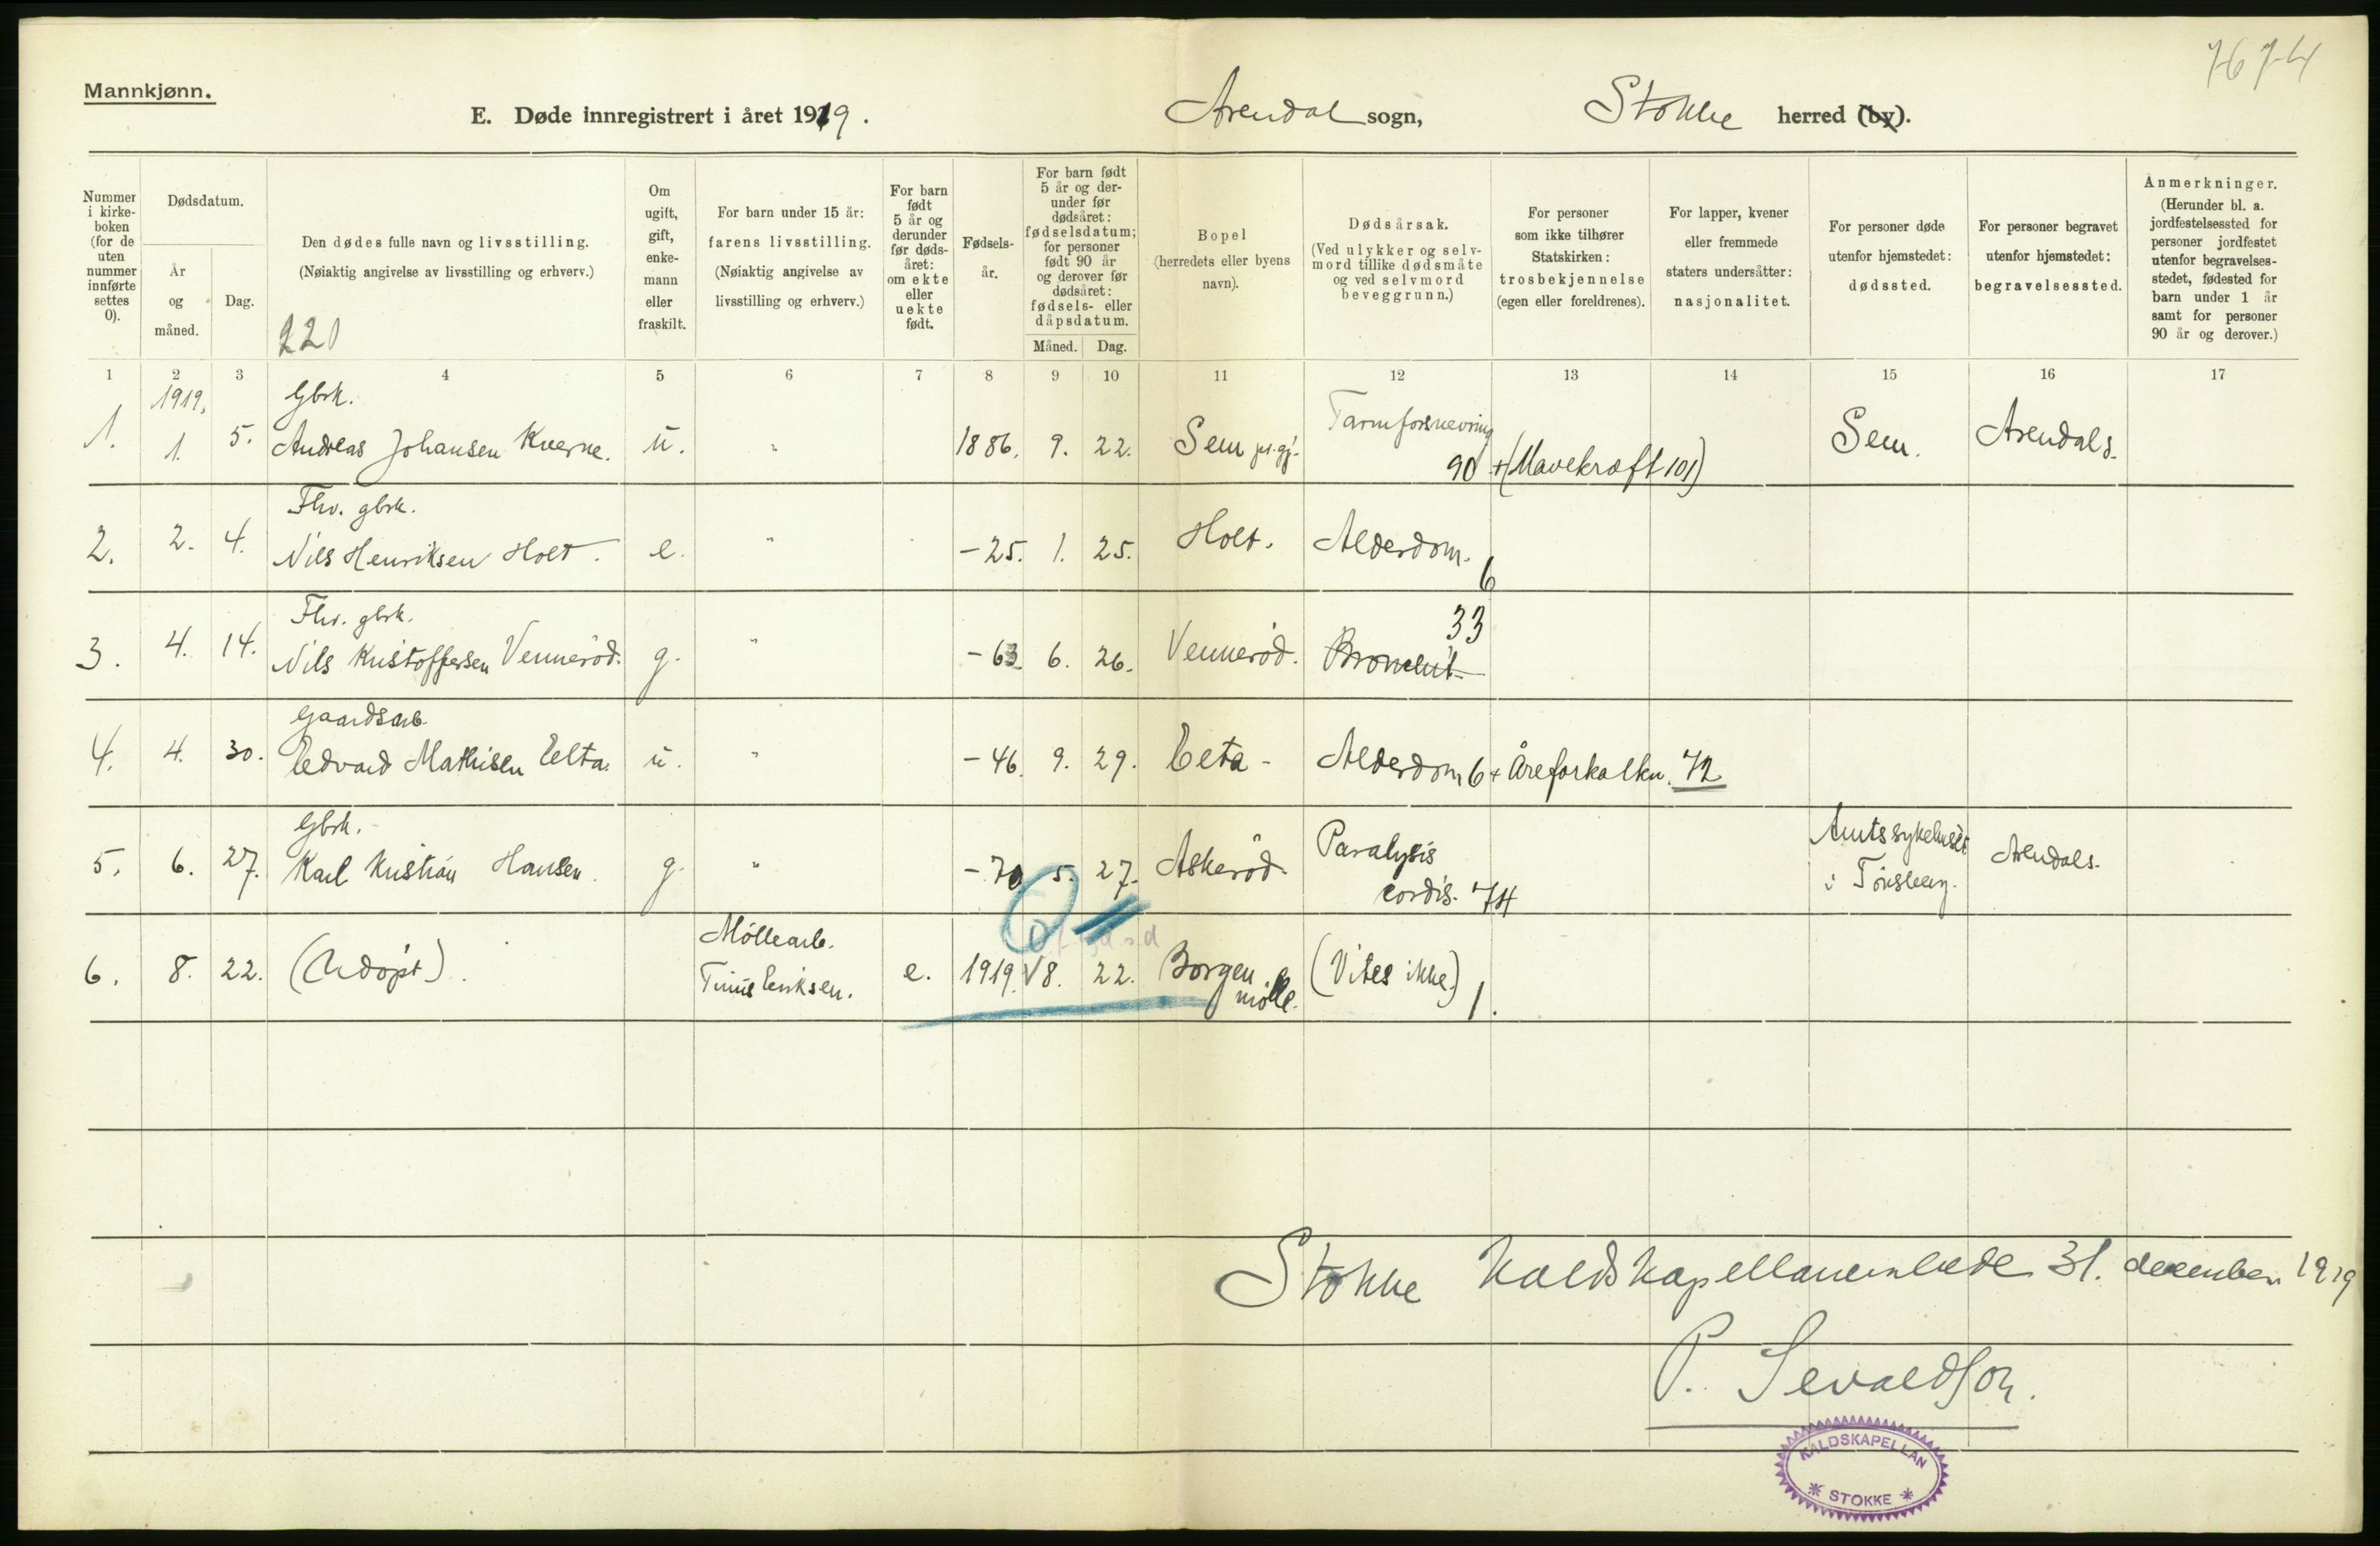 7674
Mannkjønn.
E. Døde innregistrert i året 1919.
Arendal sogn,
Stokke herred (by).
Nummer i kirkeboken (for de uten nummer innførte settes 0).
Dødsdatum.
År og måned.
Dag.
Den dødes fulle navn og livsstilling.
(Nøiaktig angivelse av livsstilling og erhverv.)
220
Om ugift, gift, enkemann eller fraskilt.
For barn under 15 år:
farens livsstilling.
(Nøiaktig angivelse av livsstilling og erhverv.)
For barn født 5 år og derunder før dødsåret: om ekte eller uekte født.
Fødselsår.
For barn født 5 år og derunder før dødsåret: fødselsdatum; for personer født 90 år og derover før dødsåret: fødsels- eller dåpsdatum.
Måned. Dag.
Bopel
(herredets eller byens navn).
Dødsårsak.
(Ved ulykker og selvmord tillike dødsmåte og ved selvmord beveggrunn.)
For personer som ikke tilhører Statskirken: trosbekjennelse (egen eller foreldrenes).
For lapper, kvener eller fremmede staters undersåtter: nasjonalitet.
For personer døde utenfor hjemstedet: dødssted.
For personer begravet utenfor hjemstedet: begravelsessted.
Anmerkninger.
(Herunder bl. a. jordfestelsessted for personer jordfestet utenfor begravelsesstedet, fødested for barn under 1 år samt for personer 90 år og derover.)
1 2 3 4 5 6 7 8 9 10 11 12 13 14 15 16 17
1919, Gbrk. Tarmforsnevring
1. 1. 5. Andreas Johansen Kverne. u. " 1886. 9. 22. Sem pr.gj. 90 + (Mavekræft 101) Sem. Arendals.
Fhv. gbrk.
2. 2. 4. Nils Henriksen Holt. e. " -25. 1. 25. Holt. Alderdom. 6
Fhv. gbrk. 33
3. 4. 14. Nils Kristoffersen Vennerød. g. " -63 6. 26. Vennerød. Bronchit
Gaardsarb.
4. 4. 30. Edvard Mathisen Eelta. u. " -46. 9. 29. Eeta - Alderdom 6 + Åreforkalkn. 72
Gbrk. Paralysis Amtssykehuset
5. 6. 27. Karl Kristian Hansen. g. " -70 5. 27. Askerød cordis. 74 i Tønsberg. Arendals.
Møllearb.
6. 8. 22. (Udøpt). Tinius Eriksen. e. 1919. 8. 22. Borgen mølle. (Vites ikke.) 1.
Stokke Kaldskapellanembede 31. december 1919
P. Sevaldson.
KALDSKAPELLAN
* STOKKE *